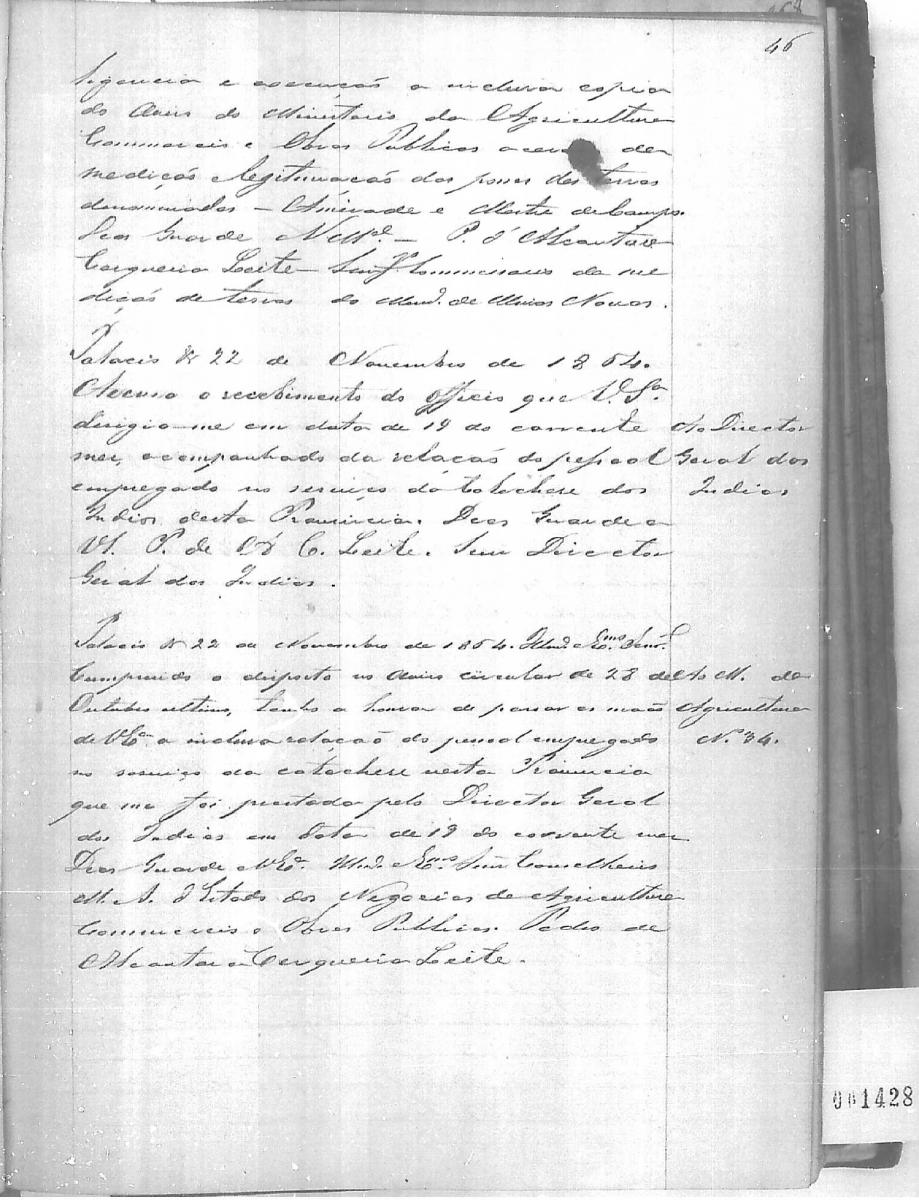 46
ligencia e execução a inclusa copia
do Aviso do Ministerio da Agricultura
Commercio e Obras Publicas acerca da
medição e legitimação das posses das terras
denominadas - e Mestre de Campo.
Deos Guarde V Mce. - P. d'Alcantara
Cerqueira Leite - Senr. Commissario da me
dição de terras do Mun. de Minas Novas.
Palacio &. 22 de Novembro de 1864.
Accuso o recebimento do officio que V. Sa.
dirigio-me em data de 19 do corrente
mez, acompanhado da relação do pessoal
empregado no serviço da Catechese dos
Indios desta Provincia. Deos Guarde a
VS. P. de A. C. Leite. Senr Director
Geral dos Indios.
Ao Director
Geral dos
Indios
Palacio &. 22 de Novembro de 1864. Illmo. Exmo. Senr.
Cumprindo o disposto no Aviso circular de 28 de
Outubro ultimo, tenho a honra de passar as mãos
de VExa. a inclusa relação do pessoal empregado
no serviço da catechese nesta Provincia
que me foi prestada pelo Director Geral
dos Indios em data de 19 do corrente mez
Deos Guarde VExa. Illmo. Exmo. Senr Conselheiro
M. S. d'Estado dos Negocios da Agricultura
Commercio e Obras Publicas. Pedro de
Alcantara Cerqueira Leite.
Ao M. da
Agricultura
N. 34.
001428